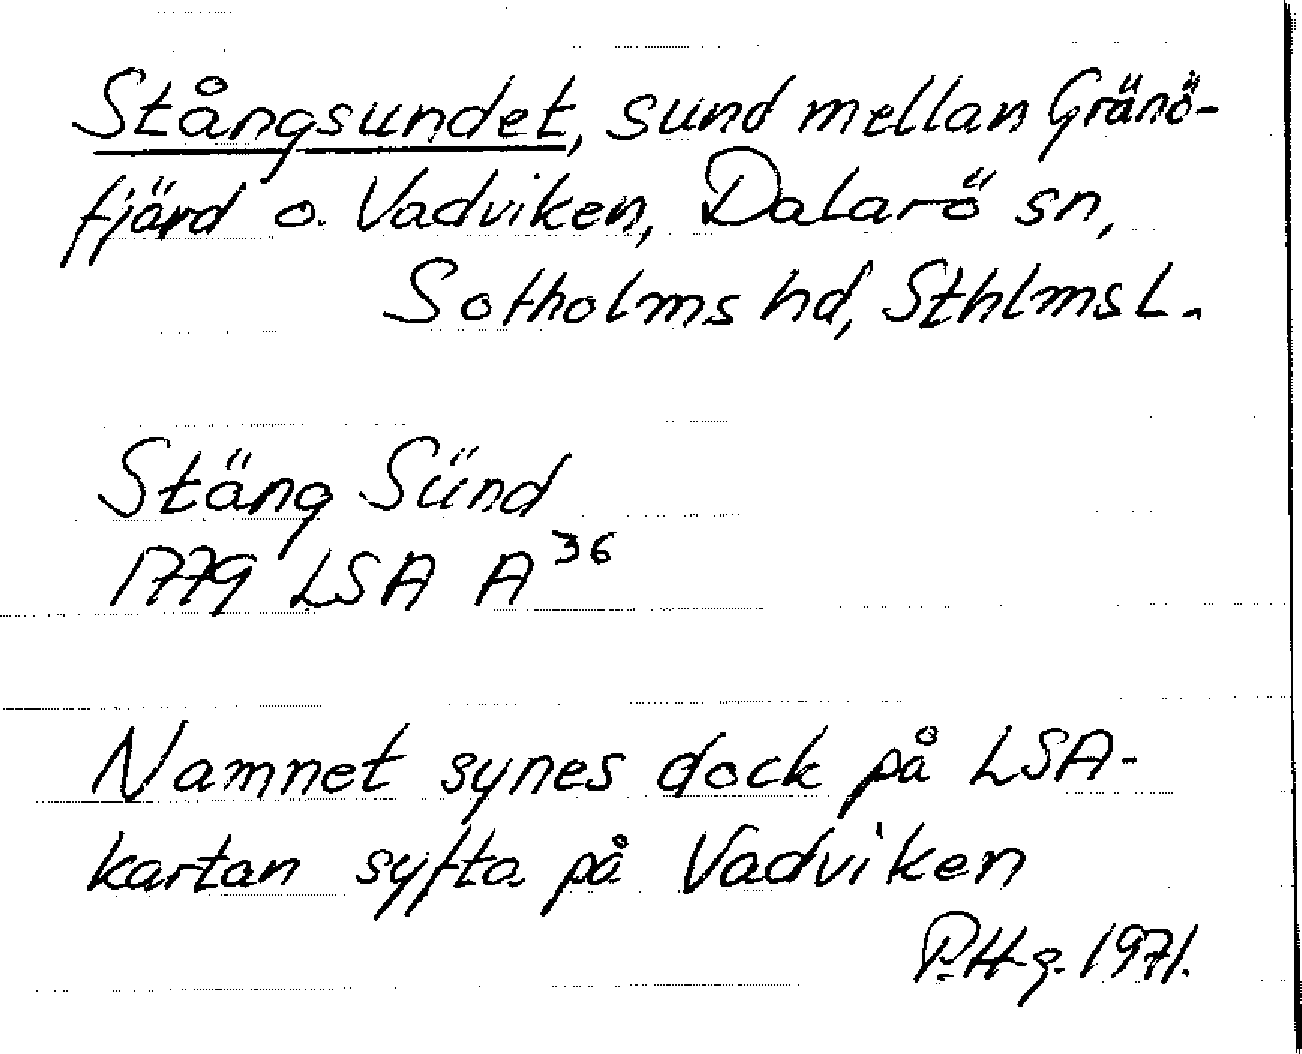 Stångsundet, sund mellan Gränö-
fjärd o. Vadviken, Dalarö sn,
Sotholms hd, Sthlms L.
Stäng Sünd
1779 LSA A³⁶
Namnet synes dock på LSA-
kartan syfta på Vadviken
P. Hg. 1971.